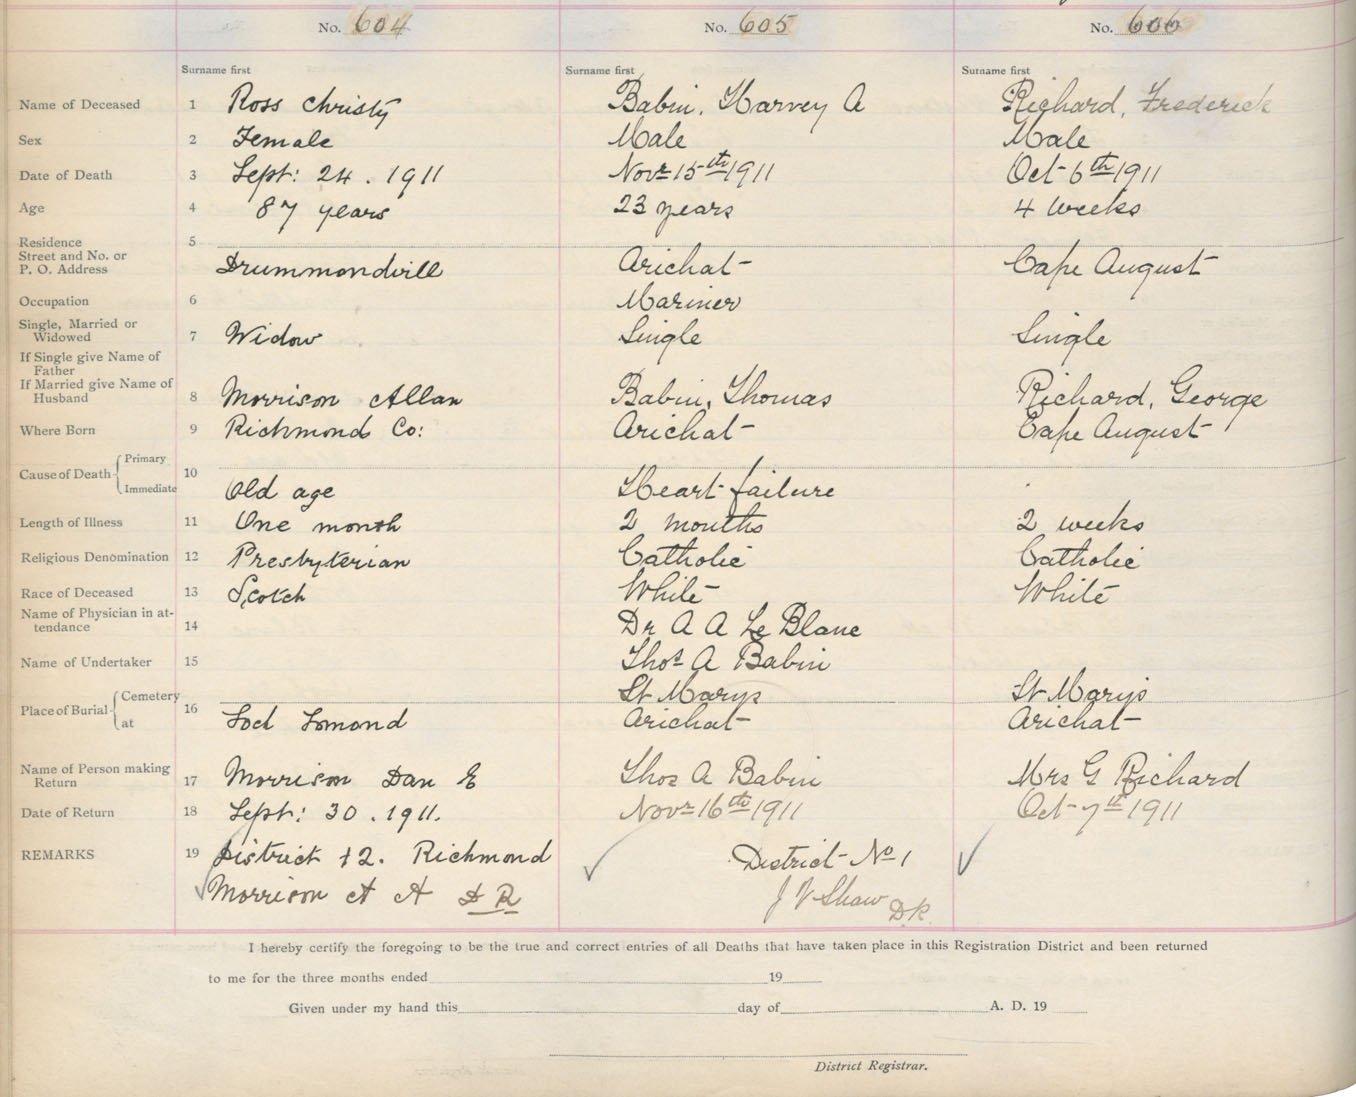 No. 604 No. 605 No. 606
Surname first Surname first Surname first
Name of Deceased 1 Ross Christy Babin, Harvey A Richard, Frederick
Sex 2 Female Male Male
Date of Death 3 Sept: 24. 1911 Novr 15th 1911 Oct 6th 1911
Age 4 87 years 23 years 4 weeks
Residence 5
Street and No. or
P. O. Address Drummondvill Arichat Cape August
Occupation 6 Mariner
Single, Married or
Widowed 7 Widow Single Single
If Single give Name of
Father
If Married give Name of
Husband 8 Morrison Allan Babin, Thomas Richard, George
Where Born 9 Richmond Co: Arichat Cape August
Cause of Death { Primary 10
Immediate Old age Heart failure
Length of Illness 11 One month 2 months 2 weeks
Religious Denomination 12 Presbyterian Catholic Catholic
Race of Deceased 13 Scotch White White
Name of Physician in at-
tendance 14 Dr A A Le Blanc
Name of Undertaker 15 Thos A Babin
Place of Burial { Cemetery 16 St Marys St Marys
at Loch Lomond Arichat Arichat
Name of Person making
Return 17 Morrison Dan E Thos A Babin Mrs G Richard
Date of Return 18 Sept: 30. 1911. Novr 16th 1911 Oct 7th 1911
REMARKS 19 District 12. Richmond District No 1
Morrison A A D R J V Shaw D.R.
I hereby certify the foregoing to be the true and correct entries of all Deaths that have taken place in this Registration District and been returned
to me for the three months ended 19
Given under my hand this day of A. D. 19
District Registrar.